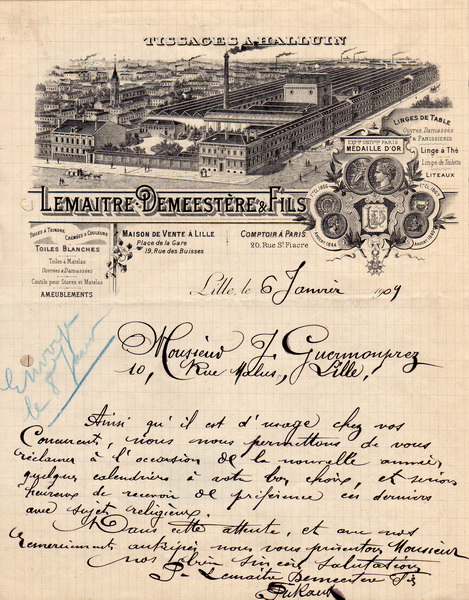 TISSAGES A HALLUIN
LINGES DE TABLE
Ouvrés Damassés
& Fantaisies
Linge à Thé
Linge de Toilette
LITEAUX
EXPon UNIVlle PARIS
MÉDAILLE D'OR
LEMAITRE-DEMEESTÈRE & FILS
TOILES À TEINDRE
CHAÎNES & COULEURS
TOILES BLANCHES
Toiles à Matelas
Ouvrées & Damassées
Coutils pour Stores et Matelas
AMEUBLEMENTS
MAISON DE VENTE À LILLE
Place de la Gare
19, Rue des Buisses
COMPTOIR À PARIS
20, Rue St Fiacre
ARGENT 1844
Lille, le 6 Janvier 1909
Envoyé
le 8 Janvier
Monsieur J. Guermonprez
10, Rue Malus, Lille,
Ainsi qu'il est d'usage chez vos
Concurrents, nous nous permettons de vous
réclamer à l'occasion de la nouvelle année,
quelques calendriers à votre bon choix, et serions
heureux de recevoir de préférence ces derniers
avec sujet religieux.
Dans cette attente, et avec nos
remerciements anticipés nous vous présentons Monsieur
nos bien sincères salutations
P. Lemaitre Demeestere Fils